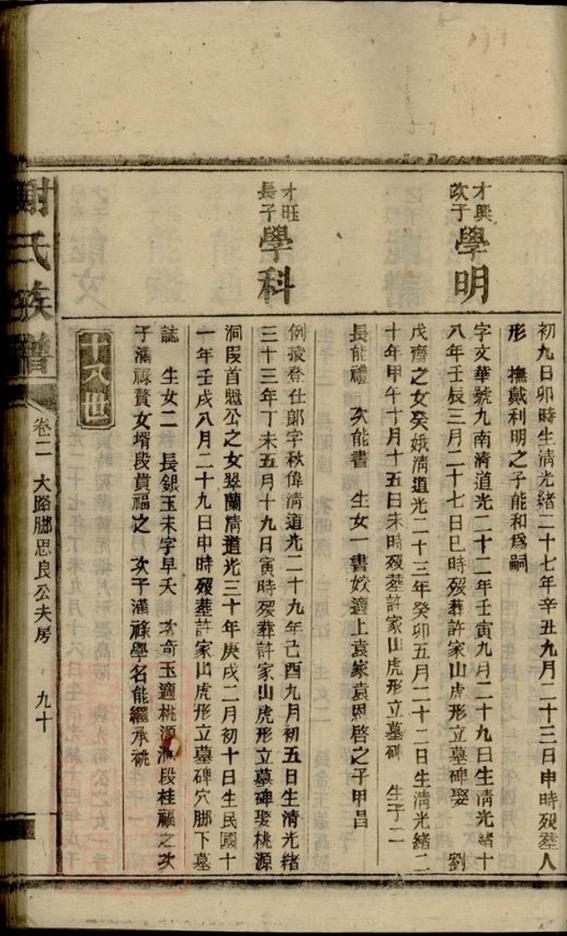 初九日卯時生清光緒二十七年辛丑九月二十三日申時歿葬人
形 撫戴利明之子能和爲嗣
才興
次子
學明
字文華號九南清道光二十二年壬寅九月二十九日生清光緒十
八年壬辰三月二十七日巳時歿葬許家山虎形立墓碑娶 劉
戊齋之女癸娥清道光二十三年癸卯五月二十二日生清光緒二
十年甲午十月十五日未時歿葬許家山虎形立墓碑 生子二
長能禮 次能書 生女一書姣適上袁家袁恩啓之子甲昌
才旺
長子
學科
例授登仕郎字秋偉清道光二十九年己酉九月初五日生清光緒
三十三年丁未五月十九日寅時歿葬許家山虎形立墓碑娶桃源
洞段首魁公之女翠蘭清道光三十年庚戌二月初十日生民國十
一年壬戌八月二十九日申時歿葬許家山虎形立墓碑穴脚下墓
誌 生女二 長銀玉未字早夭 次奇玉適桃源洞段桂福之次
子滿祿贅女壻段貴福之 次子滿祿學名能繼承祧
十八世
謝氏族譜
卷二 大路脚思良公夫房
九十